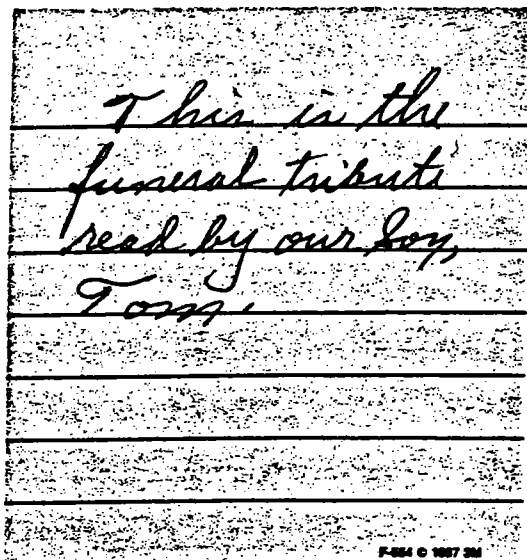 This is the
funeral tribute
read by our boy,
Tom.
F-564 © 1987 3M